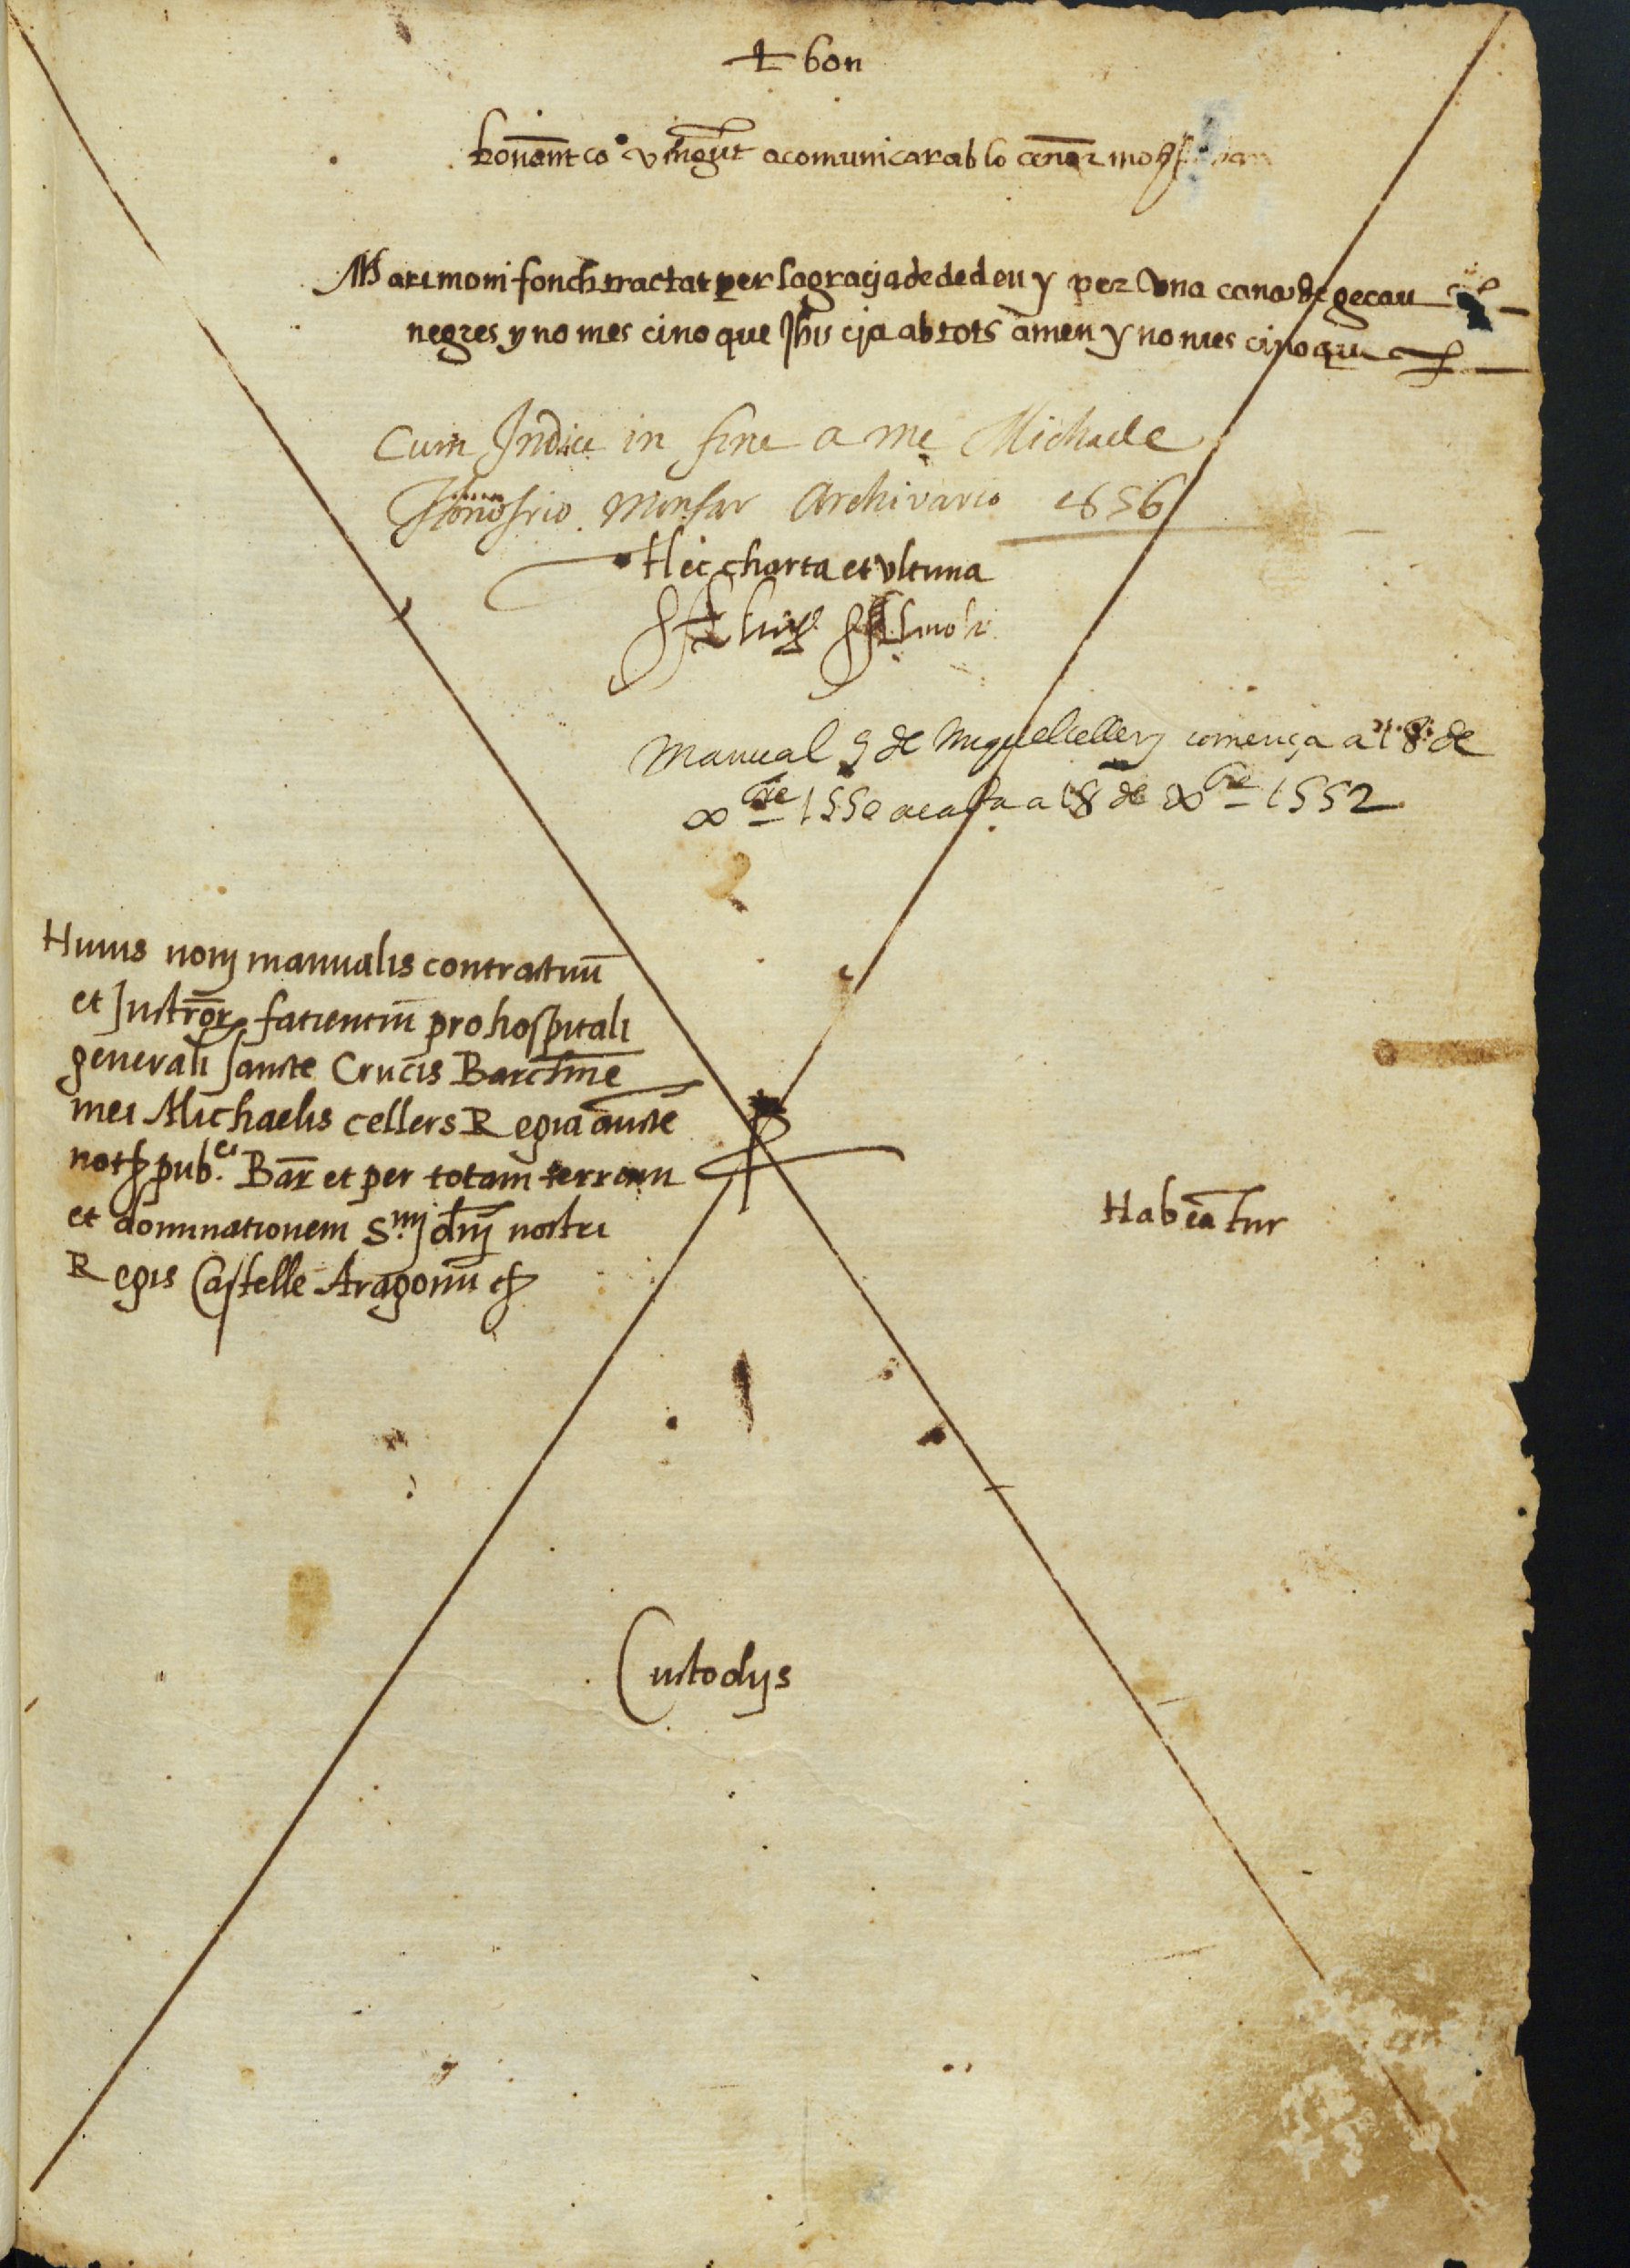 + bon
bonāmt co vingut a comunicar ab lo cenor
Matrimoni fonch tractat per la gracija de dedeu y per vna cana de
negres y no mes cino que Jhs cija ab tots amen y no mes cino que
Cum Indice in fine a me Michaele
Honofrio Monfar Archivario 1656
Hec charta et vltima
Manual 9 de Miquel cellers comença a 18 de
xbre 1550 acaba a 18 de xbre 1552
Huius noni manualis contractuū
et Instrōr fatientiū pro hospitali
generali sancte Crucis Barcīne
mei Michaelis cellers Regia aucte
not pub.ci Bar et per totam terram
et dominationem S.mi dnj nostri
Regis Castelle Aragonū etc
Habeatur
Custodijs